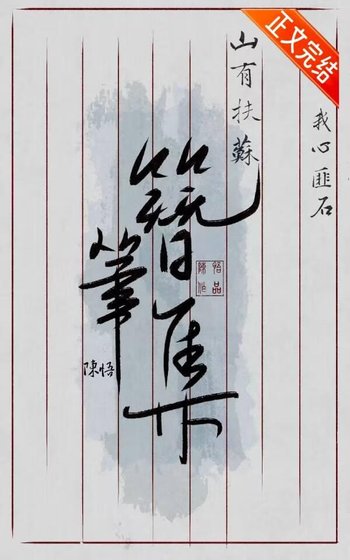 正文完结
我心匪石
山有扶蘇
簪筆集
陳悟